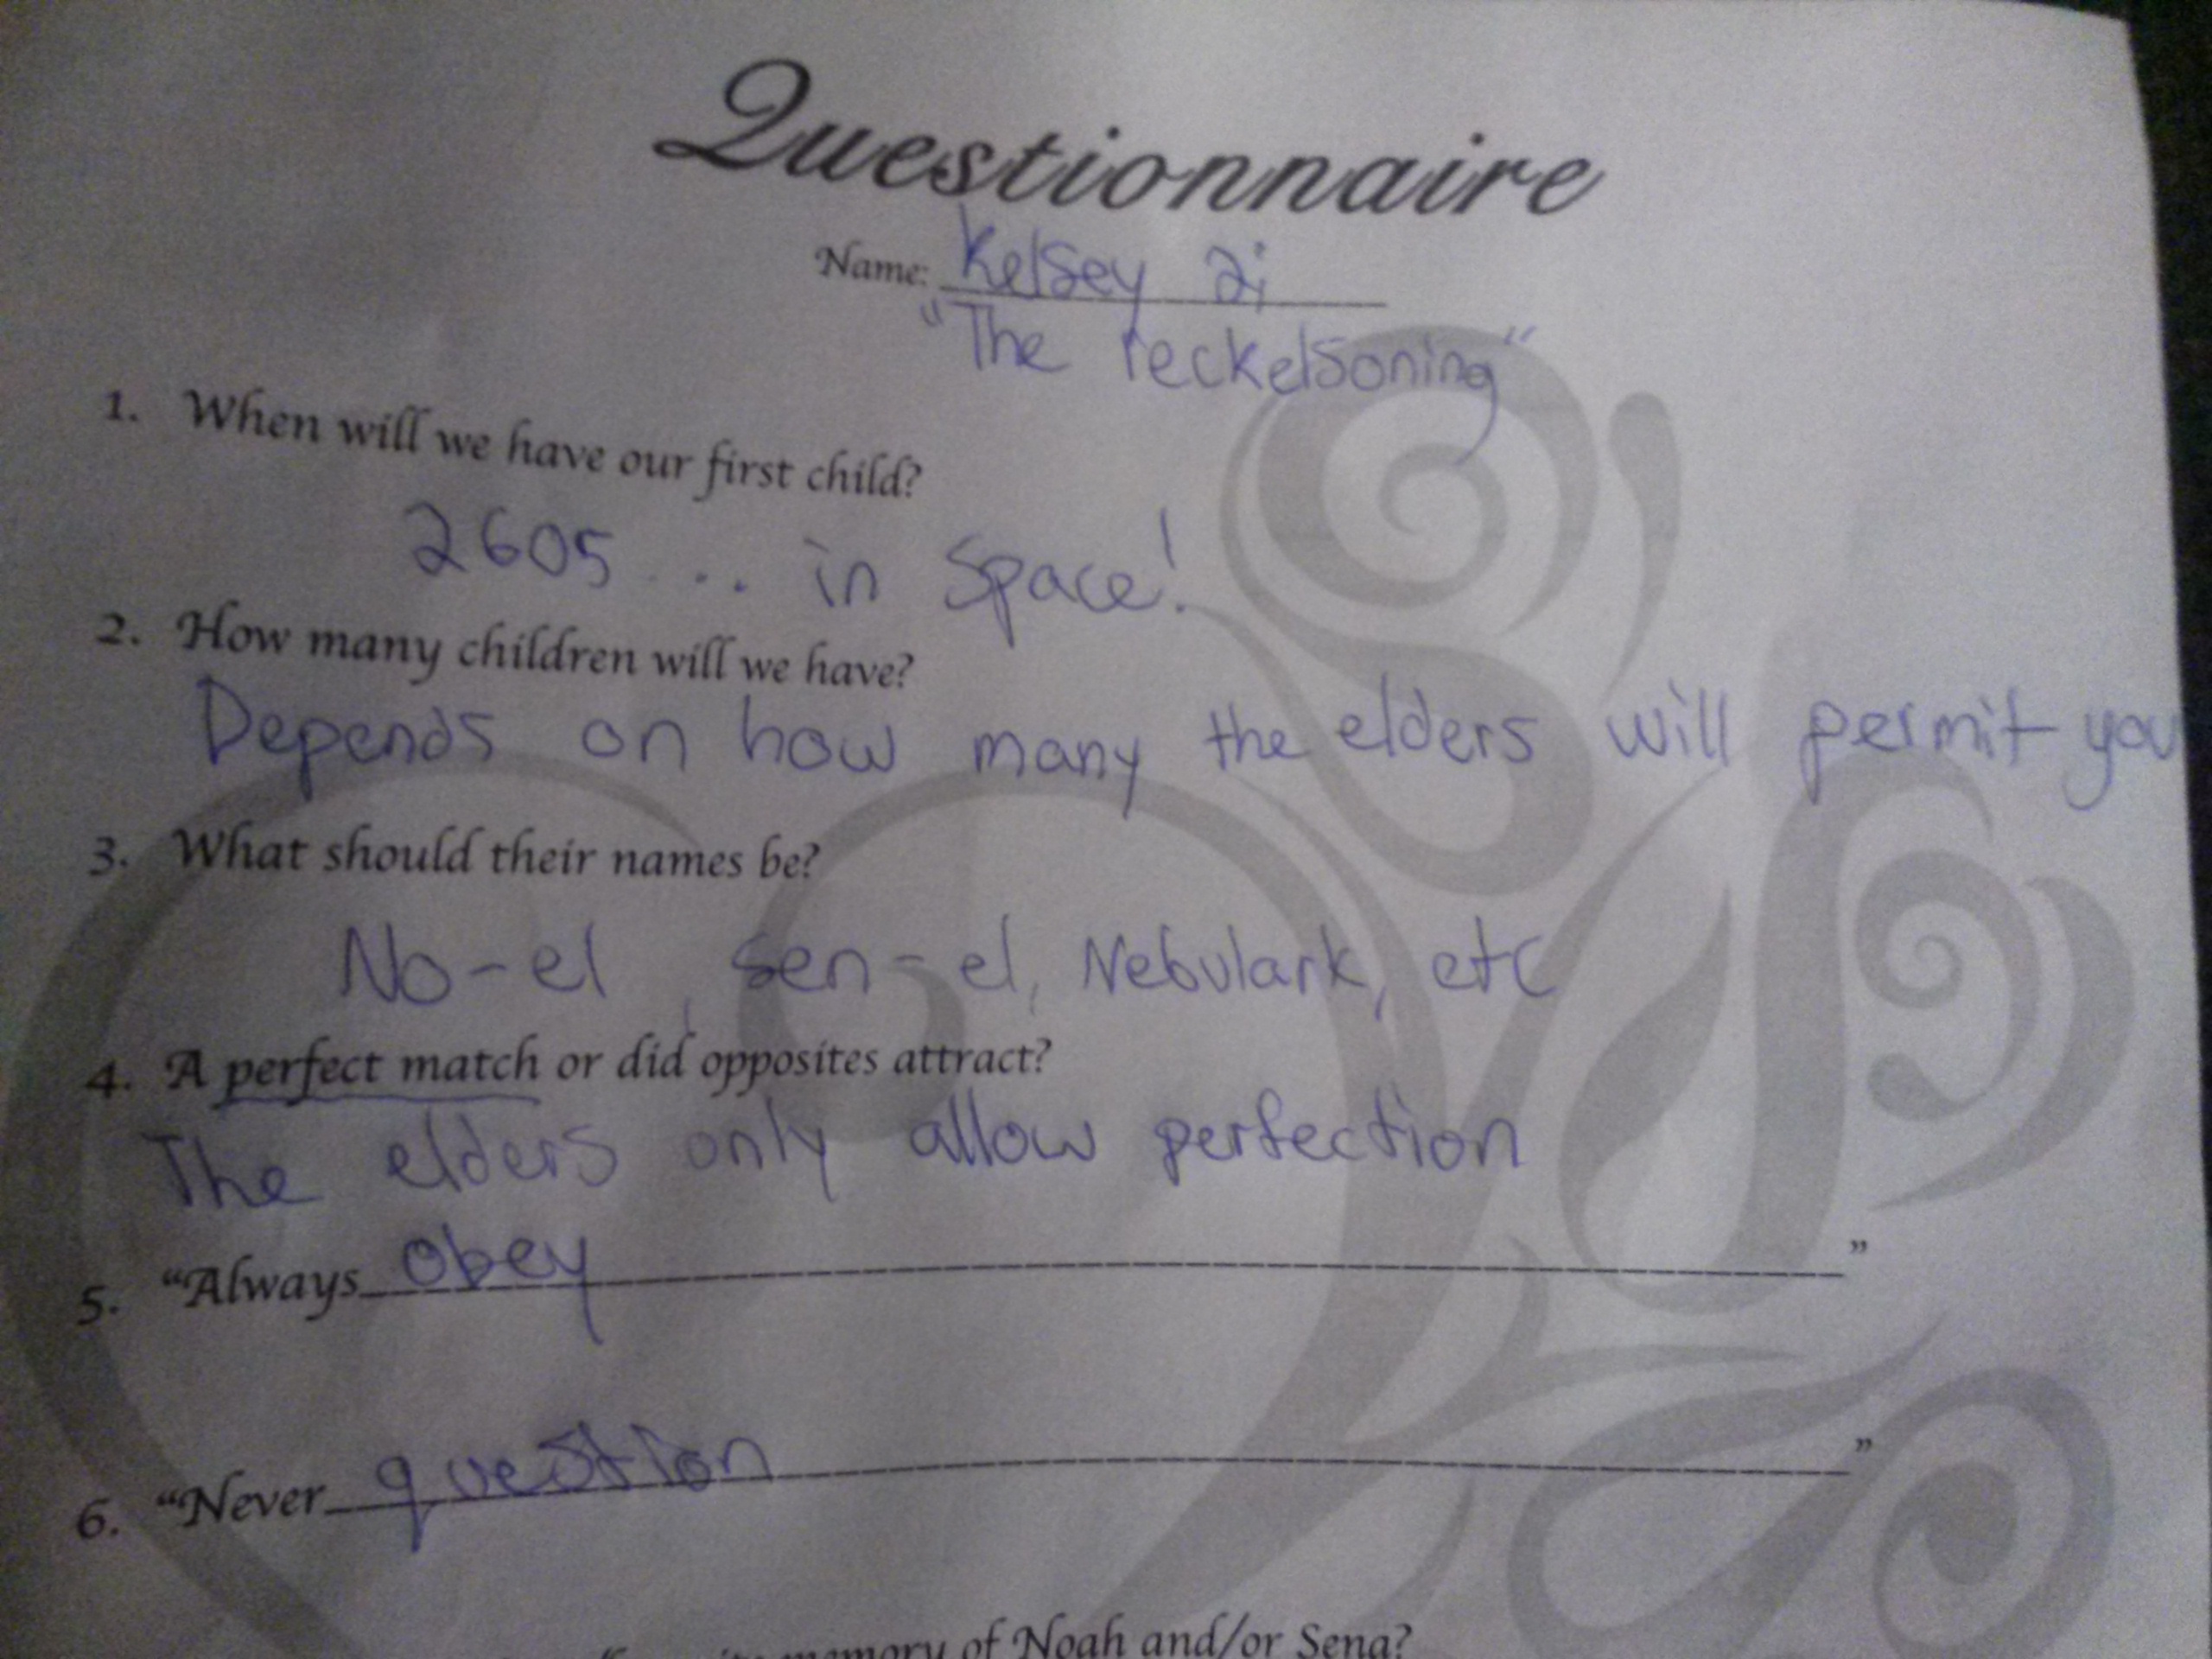 Questionnaire
Name: Kelsey 2;
"The reckelsoning"
1. When will we have our first child?
2605 ... in Space!
2. How many children will we have?
Depends on how many the elders will permit you
3. What should their names be?
No-el, Sen-el, Nebulark, etc
4. A perfect match or did opposites attract?
The elders only allow perfection
5. "Always obey"
6. "Never question"
memory of Noah and/or Sena?